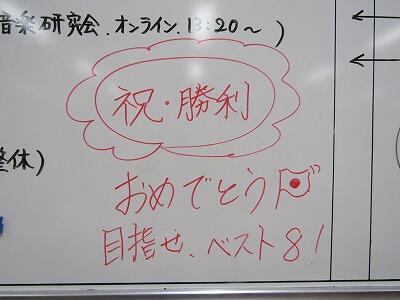 音楽研究会.オンライン.13:20~)
祝・勝利
整休)
おめでとう
目指せ、ベスト8!